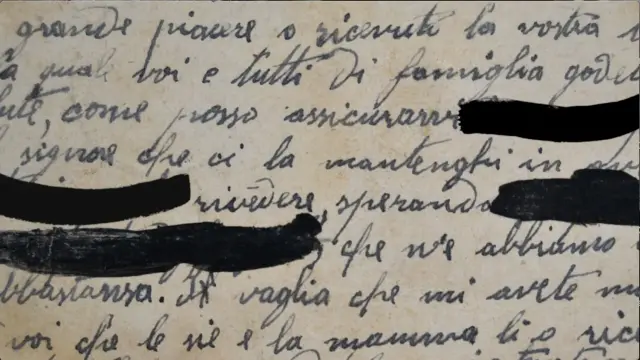 grande piacere o ricevuto la vostra
a quale voi e tutti di famiglia gode
lute, come posso assicurarv
l signore che ci la mantenghi in
rivedere, sperando
che n'e abbiamo
bbastansa. Il vaglia che mi avete m
voi che le sie e la mamma li o ric